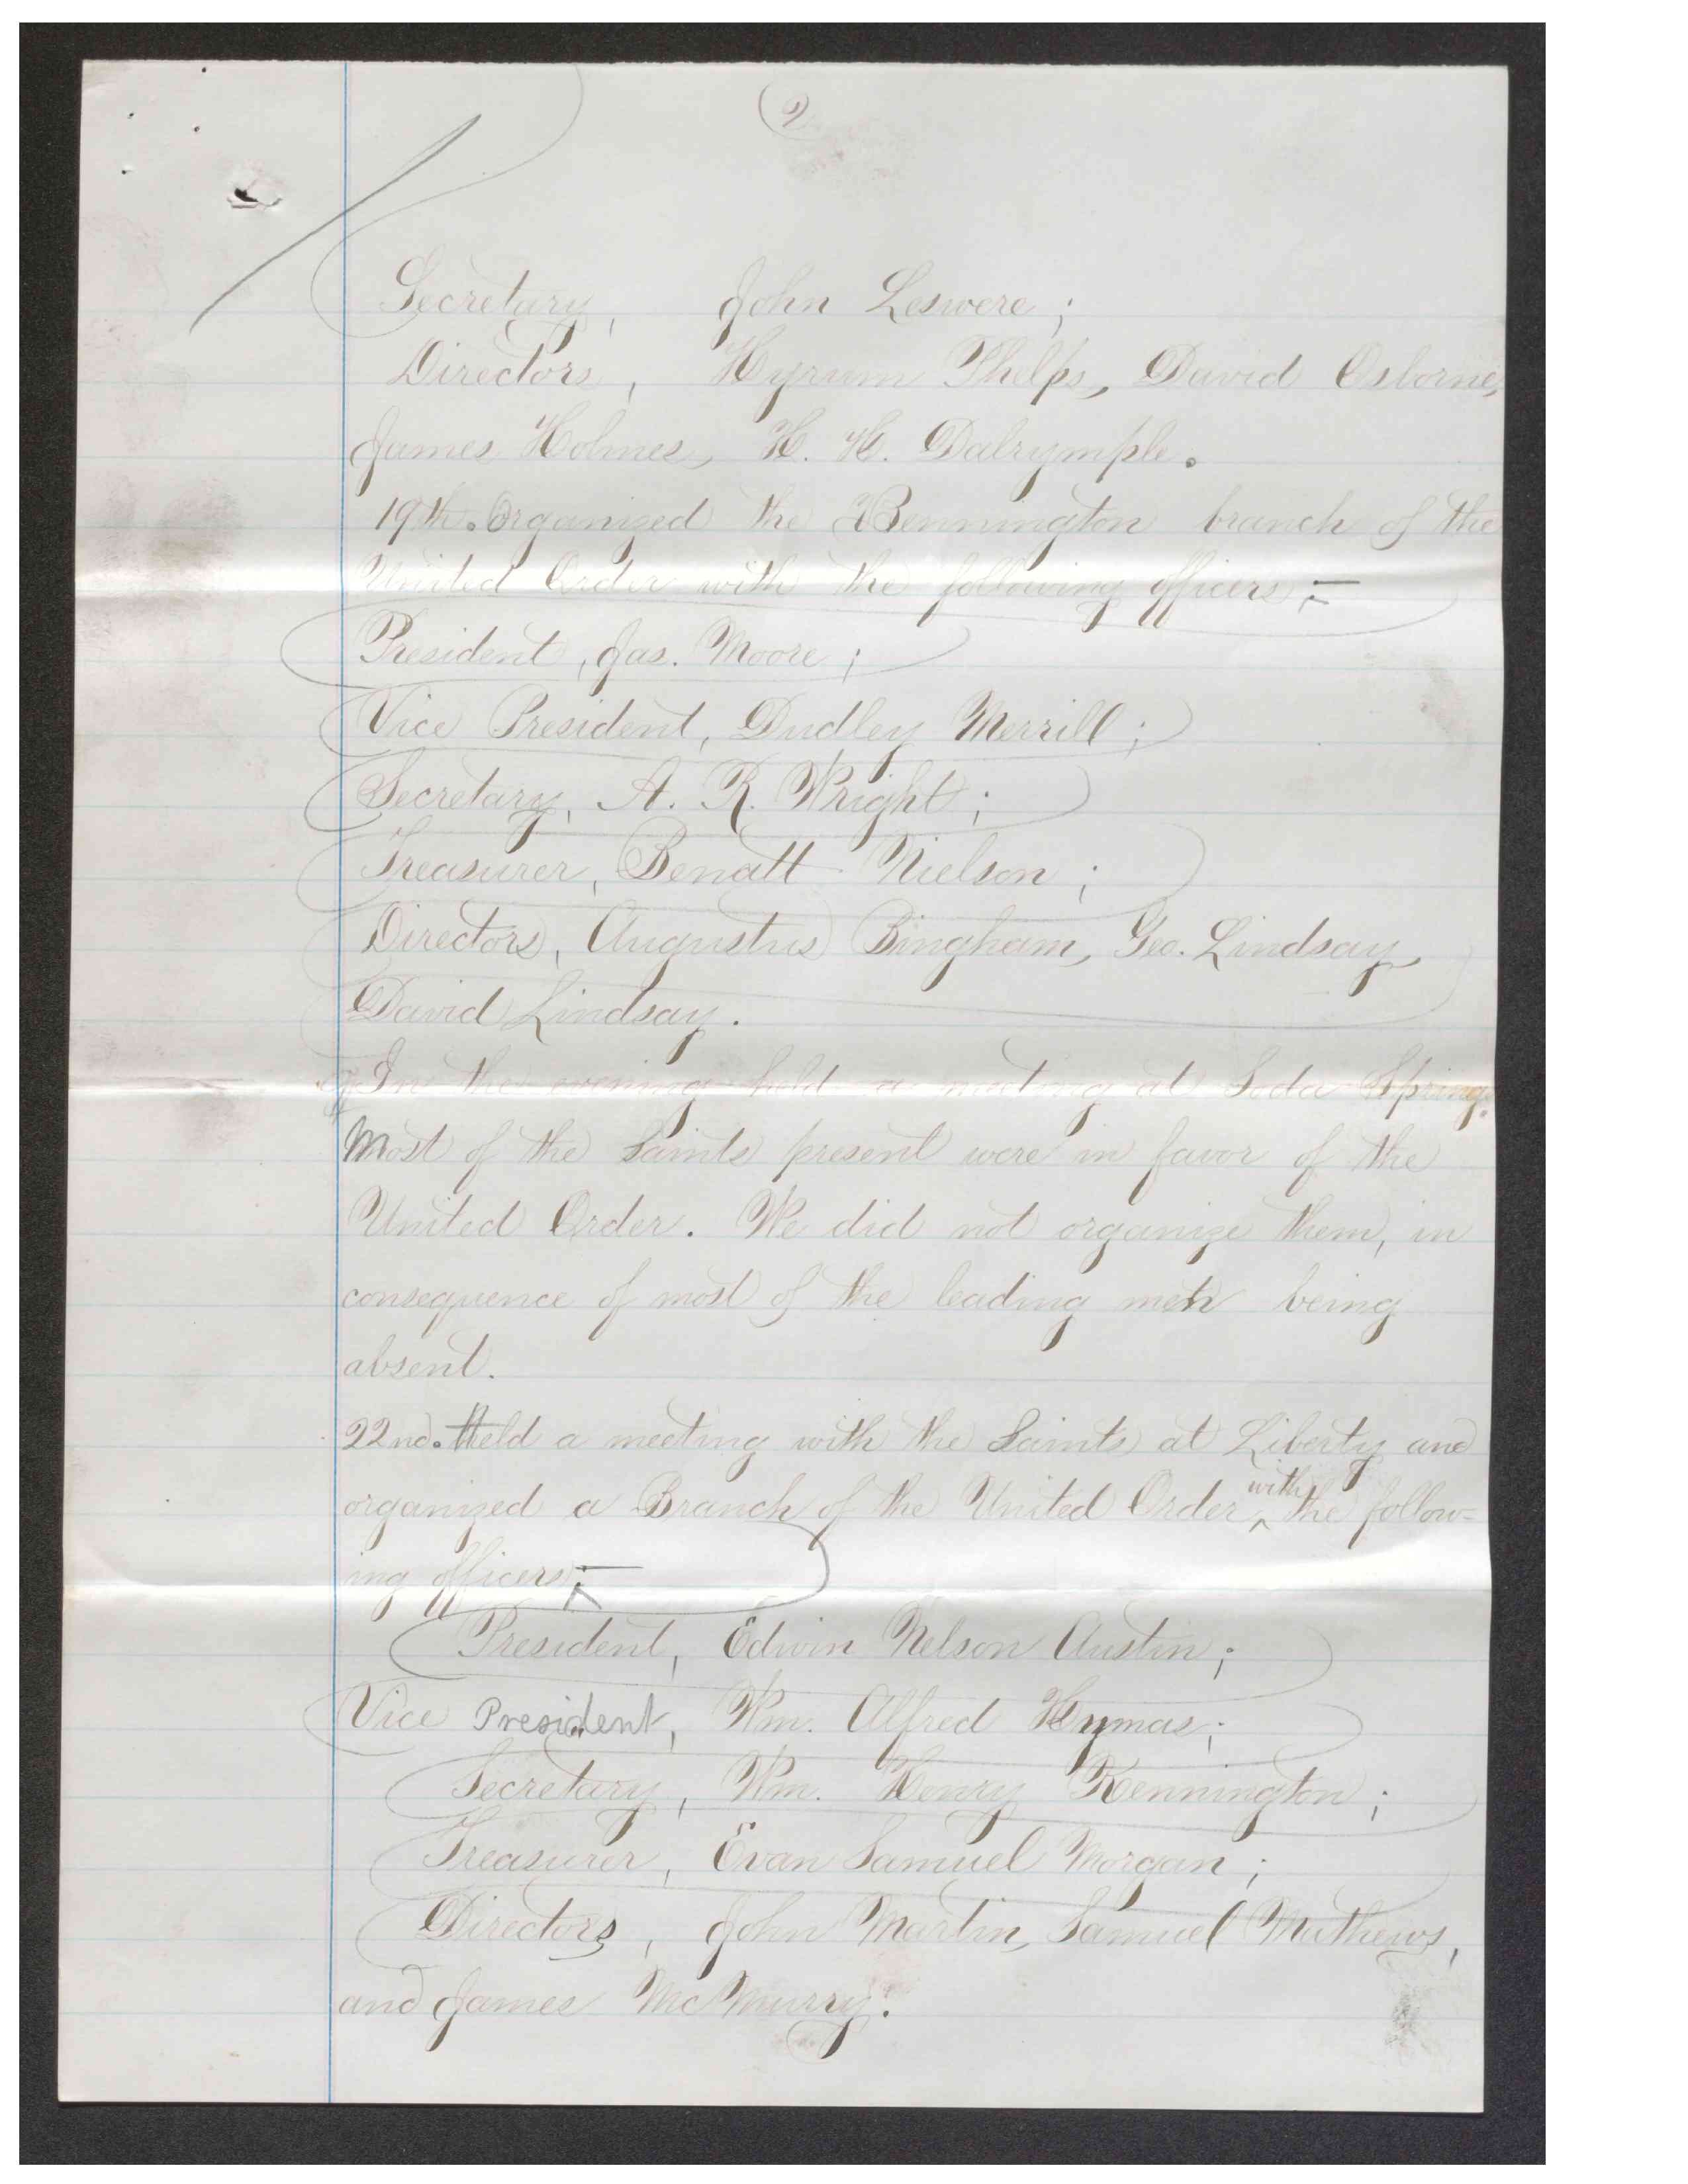 (2)
Secretary, John Leswere;
Directors, Hyrum Phelps, David Osborne,
James Holmes, H. H. Dalrymple.
19th. Organized the Bennington branch of the
United Order with the following officers:—
President, Jas. Moore;
Vice President, Dudley Merrill;
Secretary, A. R. Wright;
Treasurer, Benatt Nielson;
Directors, Augustus Bingham, Geo. Lindsay,
David Lindsay.
In the evening held a meeting at Soda Springs.
Most of the Saints present were in favor of the
United Order. We did not organize them, in
consequence of most of the leading men being
absent.
22nd. Held a meeting with the Saints at Liberty and
organized a Branch of the United Order ^with the follow=
ing officers:—
President, Edwin Nelson Austin;
Vice President, Wm. Alfred Hymas;
Secretary, Wm. Henry Kennington;
Treasurer, Evan Samuel Morgan;
Directors, John Martin, Samuel Mathews,
and James McMurry.